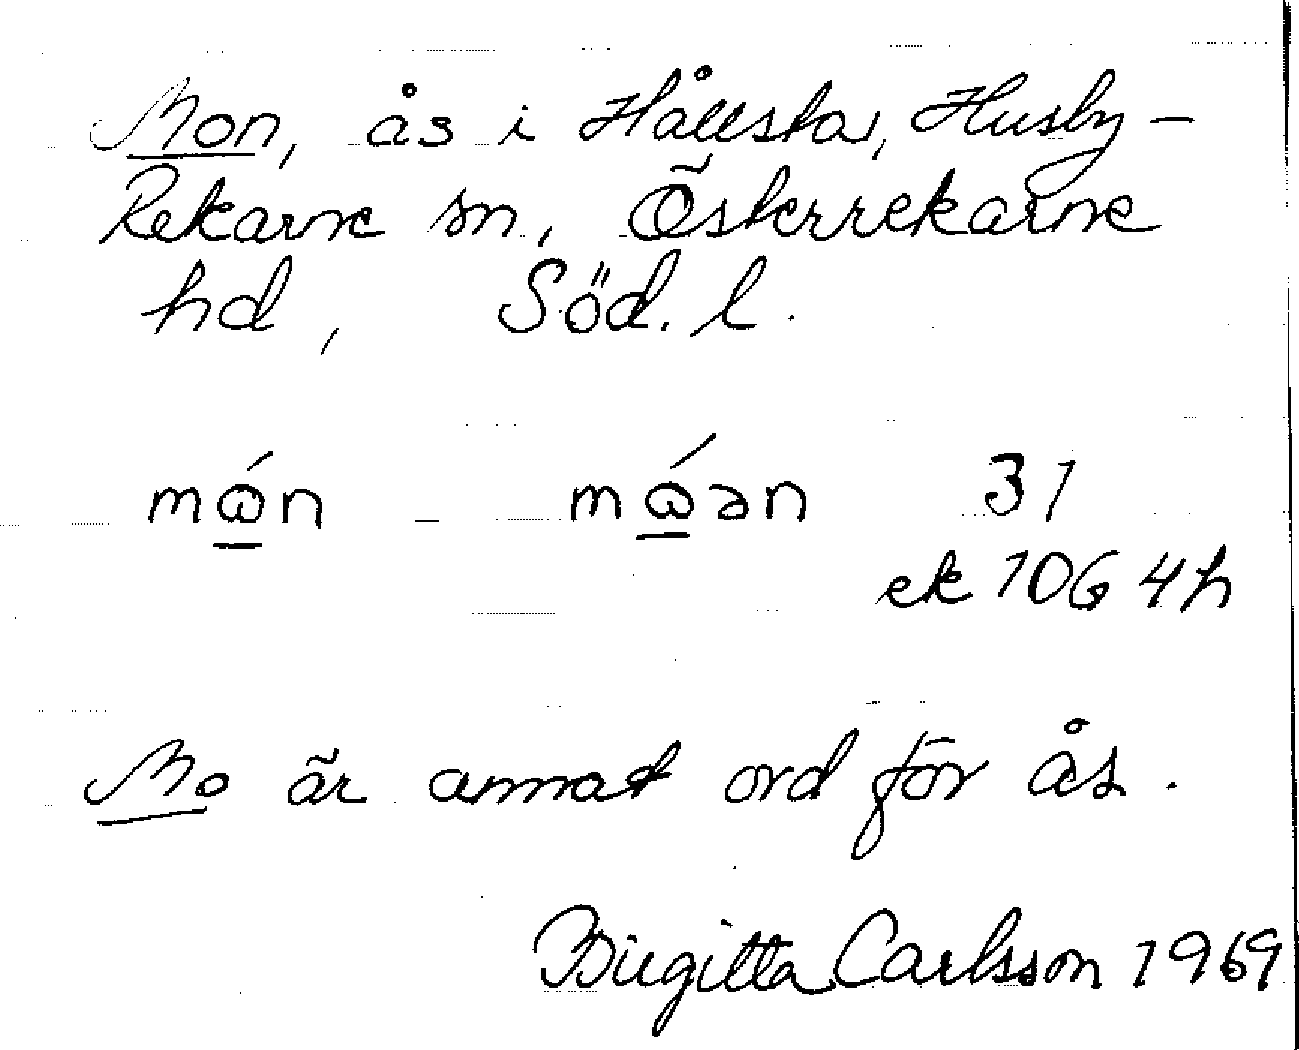 Mon, ås i Hållsta, Husby-
Rekarne sn, Österrekarne
hd, Söd. l.
mώ̲n – mώ̲ən 31
ek 10G 4h
Mo är annat ord för ås.
Birgitta Carlsson 1969